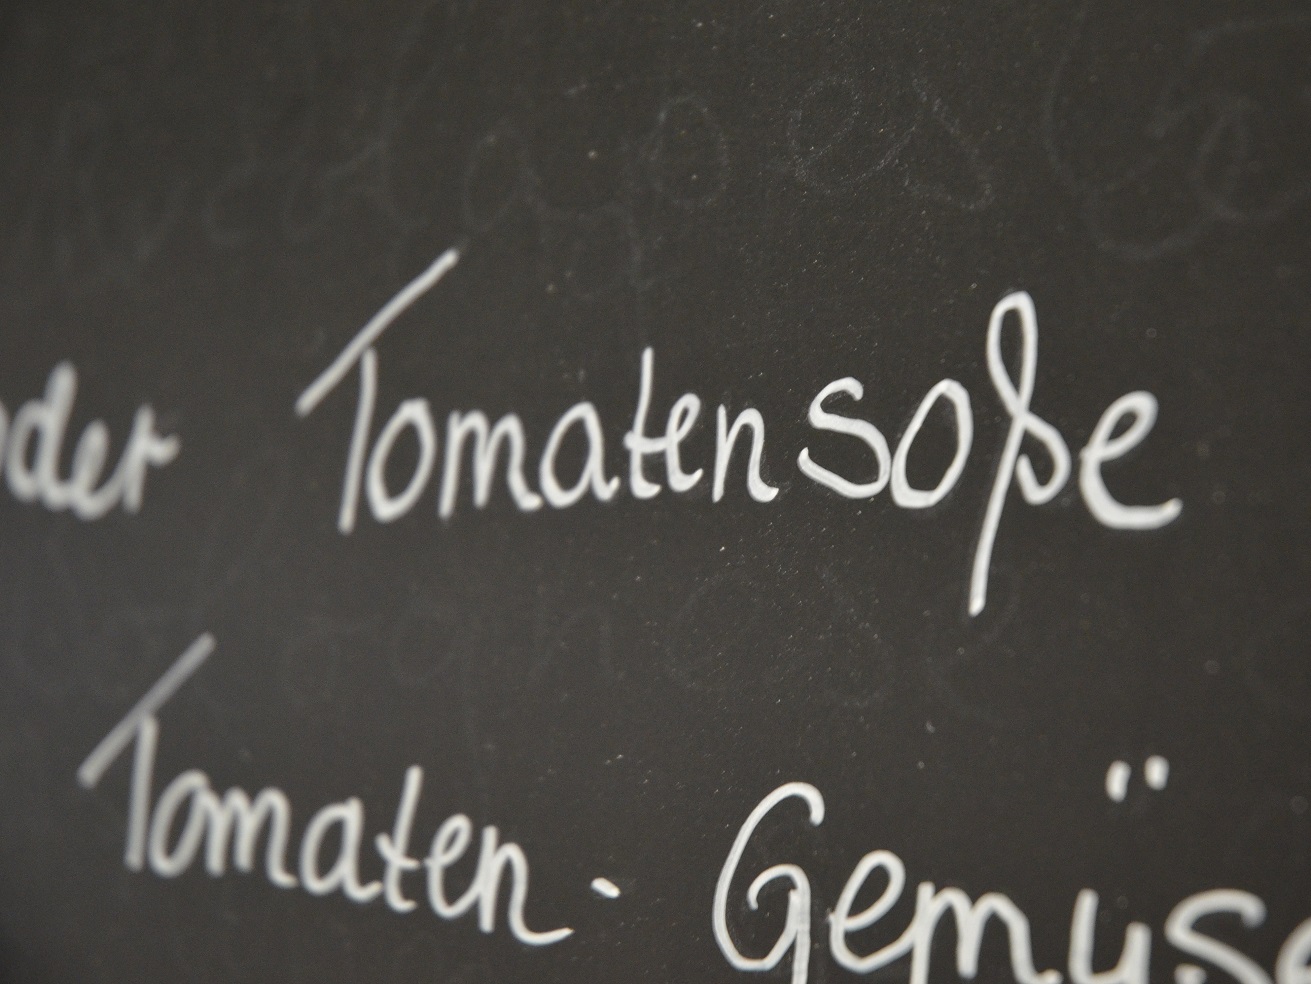 oder Tomatensoße
Tomaten - Gemüse